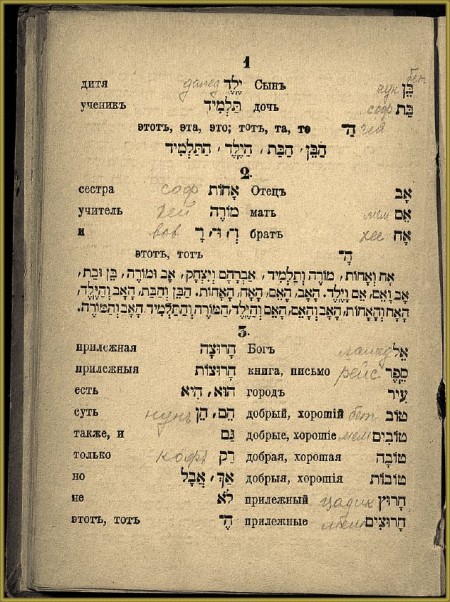 1
дитя далед יֶלֶד Сынъ нун בֵּן бет
ученикъ תַּלְמִיד дочь соф בַּת
этотъ, эта, это; тотъ, та, то הַ־ гей
הַבֵּן, הַבַּת, הַיֶּלֶד, הַתַּלְמִיד
2.
сестра соф אָחוֹת Отецъ אָב
учитель гей מוֹרֶה мать мем אֵם
и вов וְ, וּ, וָ братъ хес אָח
этотъ, тотъ הָ־
אָח וְאָחוֹת, מוֹרֶה וְתַלְמִיד, אַבְרָהָם וְיִצְחָק, אָב וּמוֹרֶה, בֵּן וּבַת,
אָב וְאֵם, אֵם וָיֶלֶד. הָאָב, הָאֵם, הָאָח, הָאָחוֹת. הַבֵּן וְהַבַּת, הָאָב וְהַיֶּלֶד,
הָאָח וְהָאָחוֹת, הָאָב וְהָאֵם, הָאֵם וְהַיֶּלֶד, הַמּוֹרֶה וְהַתַּלְמִיד הָאָב וְהַמּוֹרֶה.
3.
прилежная חָרוּצָה Богъ ламед אֵל
прилежныя חָרוּצוֹת книга, письмо рейс סֵפֶר
есть הוּא, הִיא городъ עִיר
суть нунъ הֵם, הֵן добрый, хорошій бет טוֹב
также, и גַּם добрые, хорошіе мем טוֹבִים
только кофъ רַק добрая, хорошая טוֹבָה
но אַךְ, אֲבָל добрыя, хорошія טוֹבוֹת
не לֹא прилежный цадик חָרוּץ
этотъ, тотъ הֶ־ прилежные мем חָרוּצִים